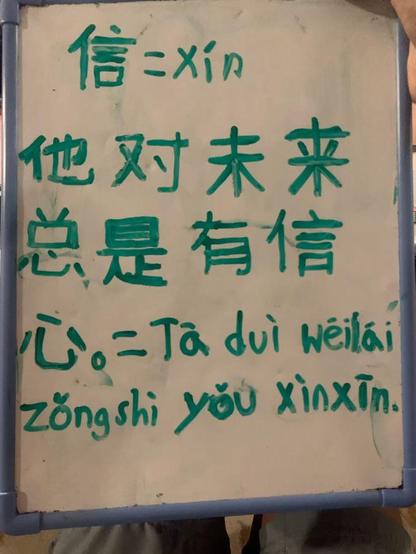 信=xín
他对未来
总是有信
心。=Tā duì wēilái
zǒngshi yǒu xìnxīn.